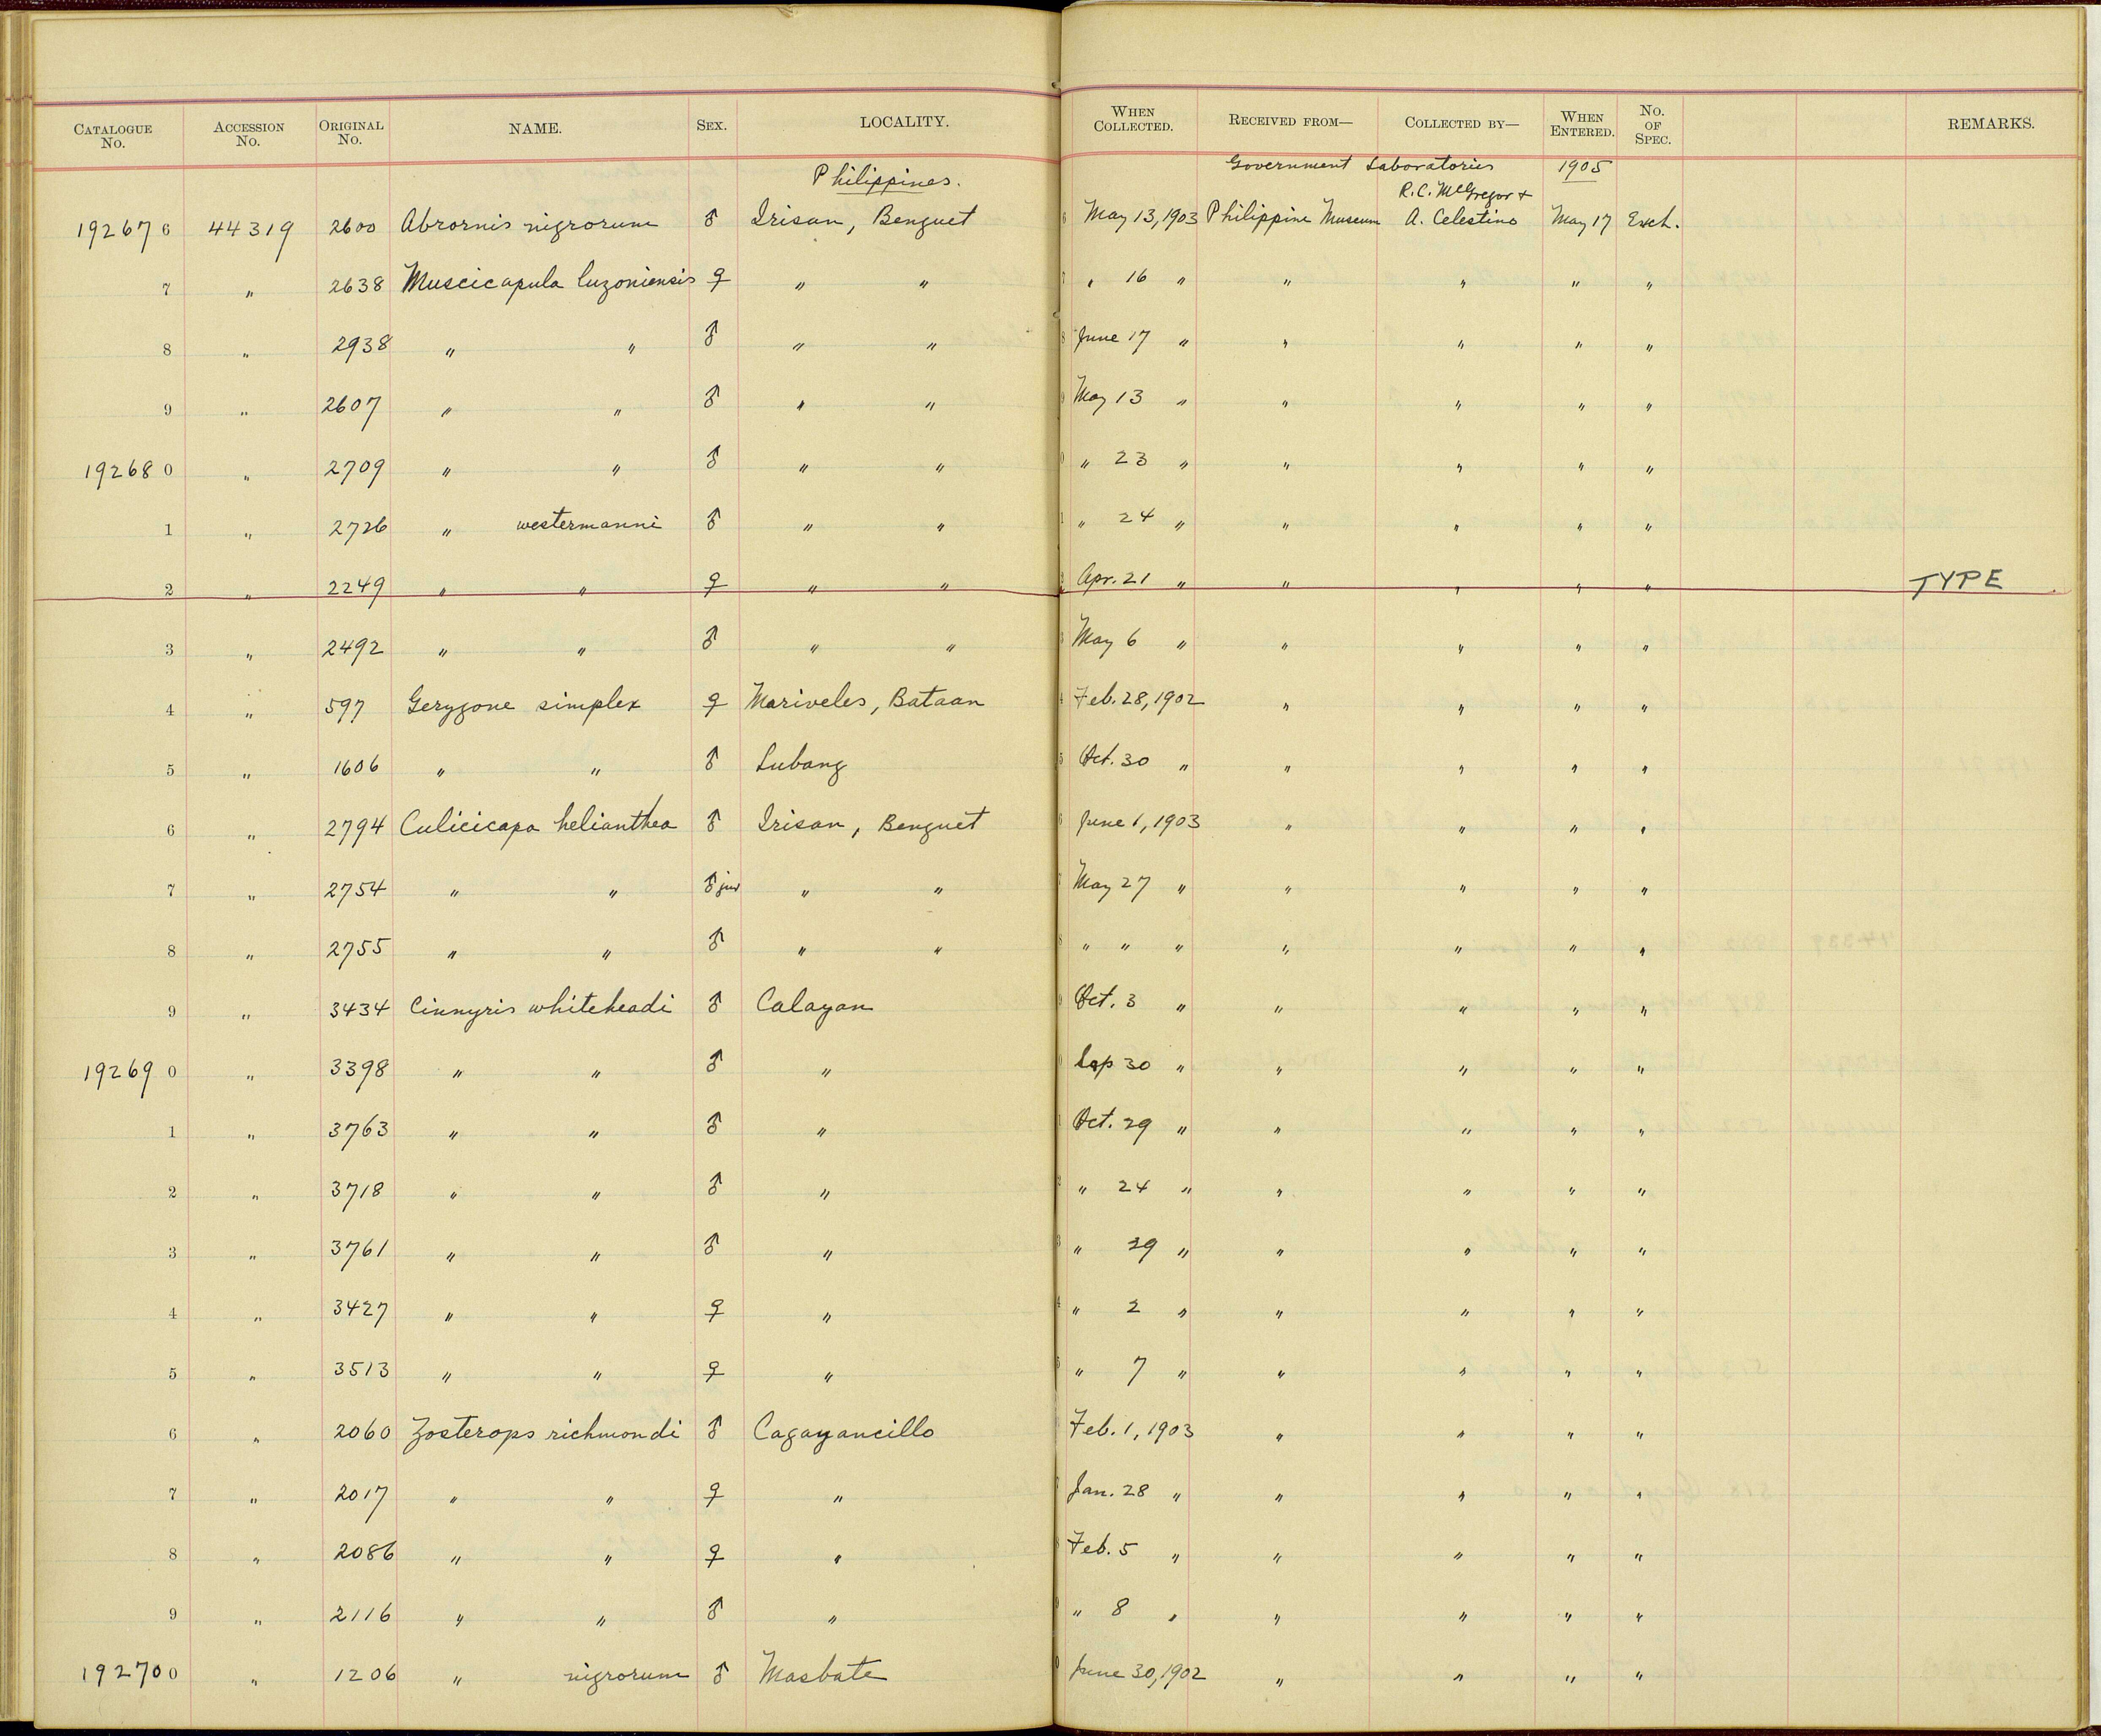 CATALOGUE No. ACCESSION No. ORIGINAL No. NAME. SEX. LOCALITY. WHEN COLLECTED. RECEIVED FROM— COLLECTED BY— WHEN ENTERED. No. OF SPEC. REMARKS.
Philippines. Government Laboratories 1905
R.C. McGregor +
19267 6 44319 2600 Abrornis nigrorum ♂ Irisan, Benguet 6 May 13, 1903 Philippine Museum A. Celestino May 17 Exch.
7 " 2638 Muscicapula luzoniensis ♀ " " 7 " 16 " " " " "
8 " 2938 " " ♂ " " 8 June 17 " " " " "
9 " 2607 " " ♂ " " 9 May 13 " " " " "
19268 0 " 2709 " " ♂ " " 0 " 23 " " " " "
1 " 2726 " westermanni ♂ " " 1 " 24 " " " " "
2 " 2249 " " ♀ " " 2 Apr. 21 " " " " " TYPE
3 " 2492 " " ♂ " " 3 May 6 " " " " "
4 " 597 Gerygone simplex ♀ Mariveles, Bataan 4 Feb. 28, 1902 " " " "
5 " 1606 " " ♂ Lubang 5 Oct. 30 " " " " "
6 " 2794 Culicicapa helianthea ♂ Irisan, Benguet 6 June 1, 1903 " " " "
7 " 2754 " " ♂ juv " " 7 May 27 " " " " "
8 " 2755 " " ♂ " " 8 " " " " " " "
9 " 3434 Cinnyris whiteheadi ♂ Calayan 9 Oct. 3 " " " " "
19269 0 " 3398 " " ♂ " 0 Sep 30 " " " " "
1 " 3763 " " ♂ " 1 Oct. 29 " " " " "
2 " 3718 " " ♂ " 2 " 24 " " " " "
3 " 3761 " " ♂ " 3 " 29 " " " " "
4 " 3427 " " ♀ " 4 " 2 " " " " "
5 " 3513 " " ♀ " 5 " 7 " " " " "
6 " 2060 Zosterops richmondi ♂ Cagayancillo Feb. 1, 1903 " " " "
7 " 2017 " " ♀ " 7 Jan. 28 " " " " "
8 " 2086 " " ♀ " 8 Feb. 5 " " " " "
9 " 2116 " " ♂ " 9 " 8 " " " " "
19270 0 " 1206 " nigrorum ♂ Masbate 0 June 30, 1902 " " " "